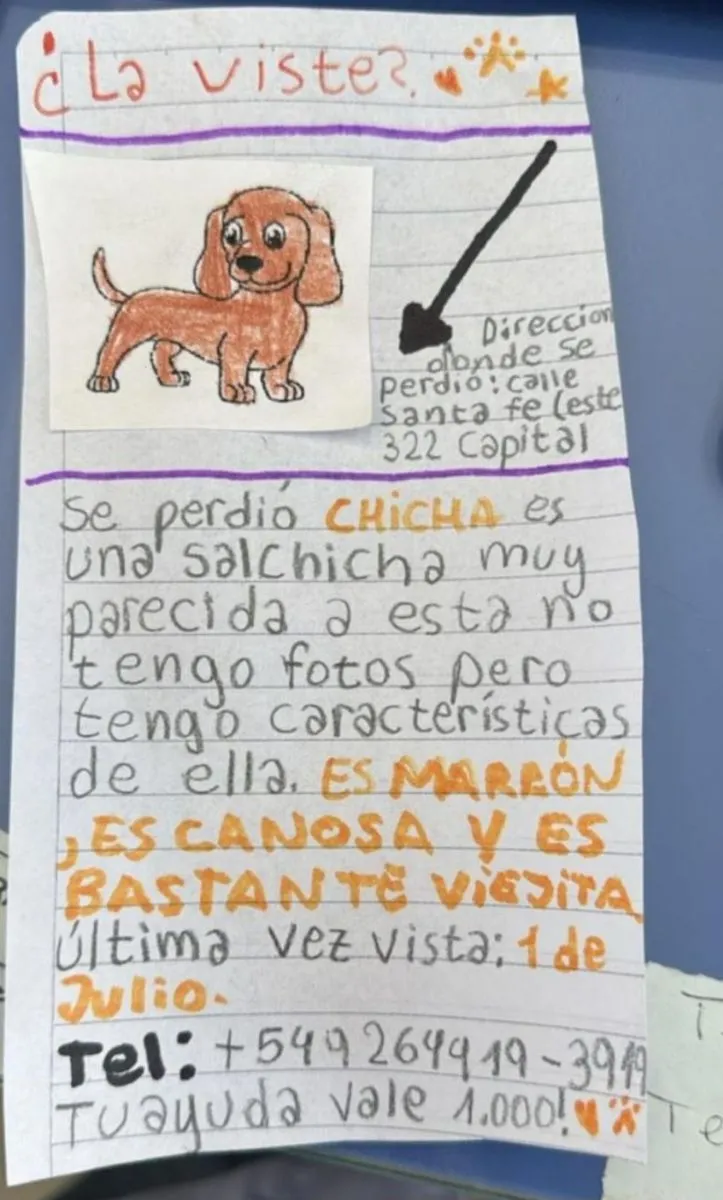 ¿La viste?
Direccion
donde se
perdió: calle
Santa fe (este
322 Capital
Se perdió CHiCHA es
una salchicha muy
parecida a esta no
tengo fotos pero
tengo características
de ella. ES MARRÓN
,ES CANOSA Y ES
BASTANTE ViEJiTA
Última vez vista: 1 de
Julio.
Tel: +549264919-3919
Tu ayuda vale 1.000!
T
Te